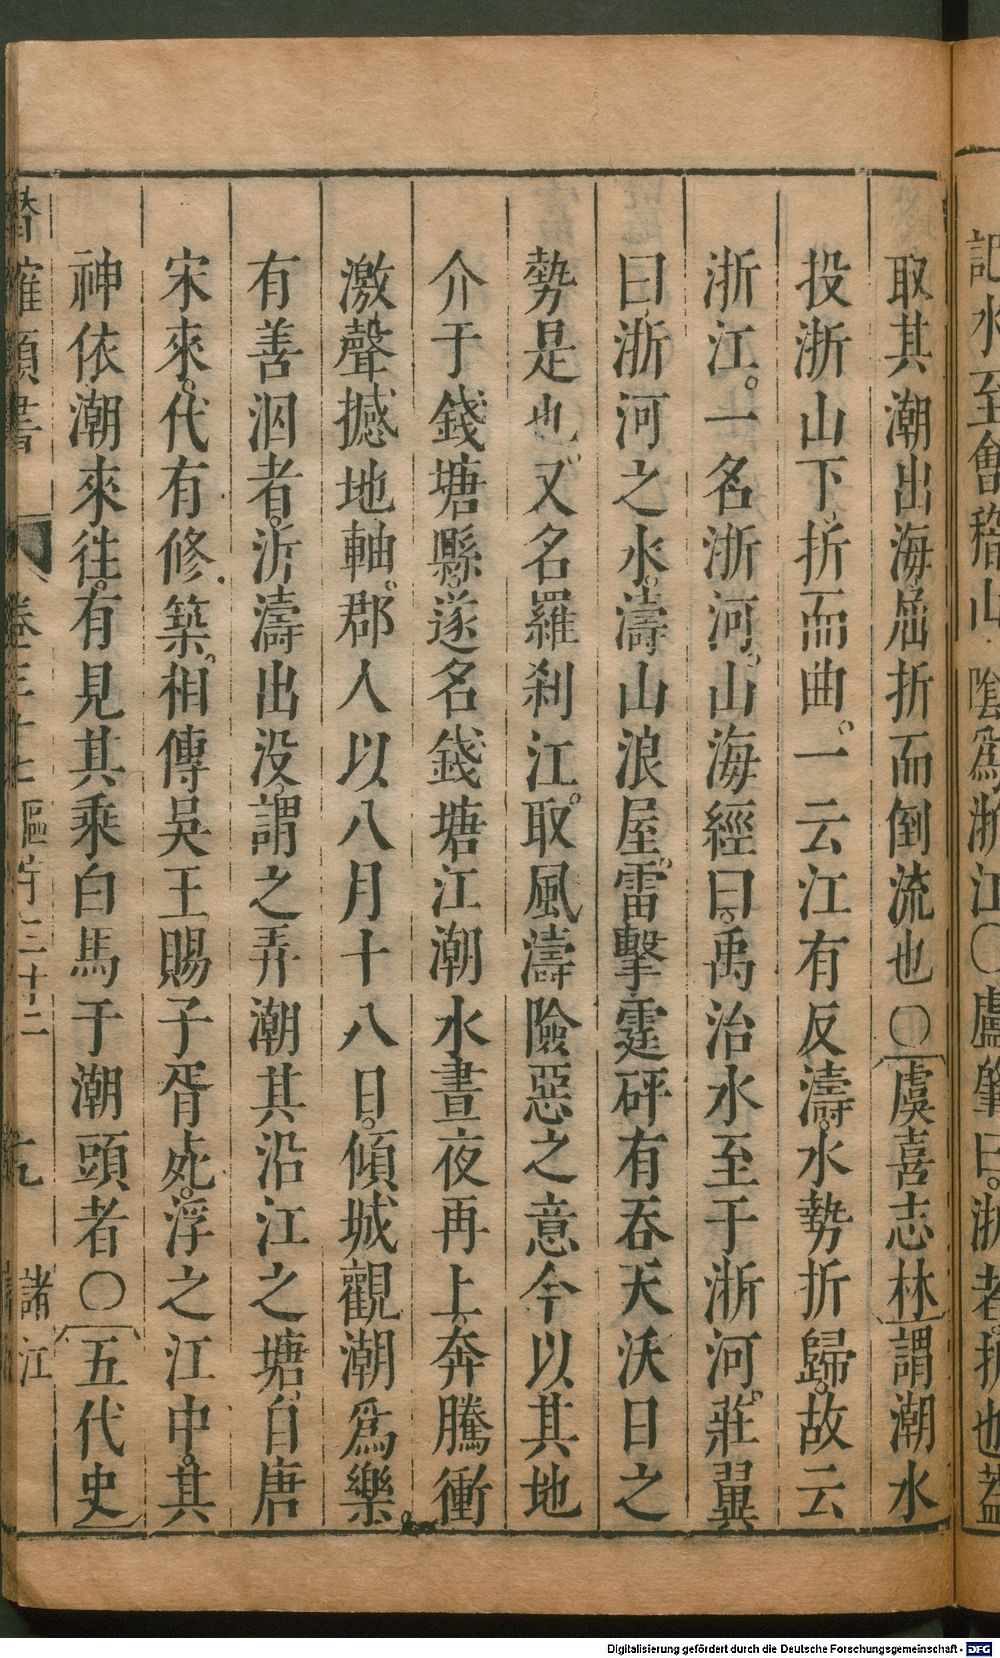 記水至會稽山陰爲浙江〇盧肇曰浙者折也蓋
取其潮出海屈折而倒流也〇虞喜志林謂潮水
投浙山下折而曲一云江有反濤水勢折歸故云
浙江一名浙河山海經曰禹治水至于浙河莊翼
曰浙河之水濤山浪屋雷擊霆砰有吞天沃日之
勢是也又名羅刹江取風濤險惡之意今以其地
介于錢塘縣遂名錢塘江潮水晝夜再上奔騰衝
激聲撼地軸郡人以八月十八日傾城觀潮爲樂
有善泅者泝濤出没謂之弄潮其沿江之塘自唐
宋來代有修築相傳吳王賜子胥死浮之江中其
神依潮來徃有見其乘白馬于潮頭者〇五代史
潛確類書 卷三十七 區宇三十二 九 諸江
Digitalisierung gefördert durch die Deutsche Forschungsgemeinschaft - DFG